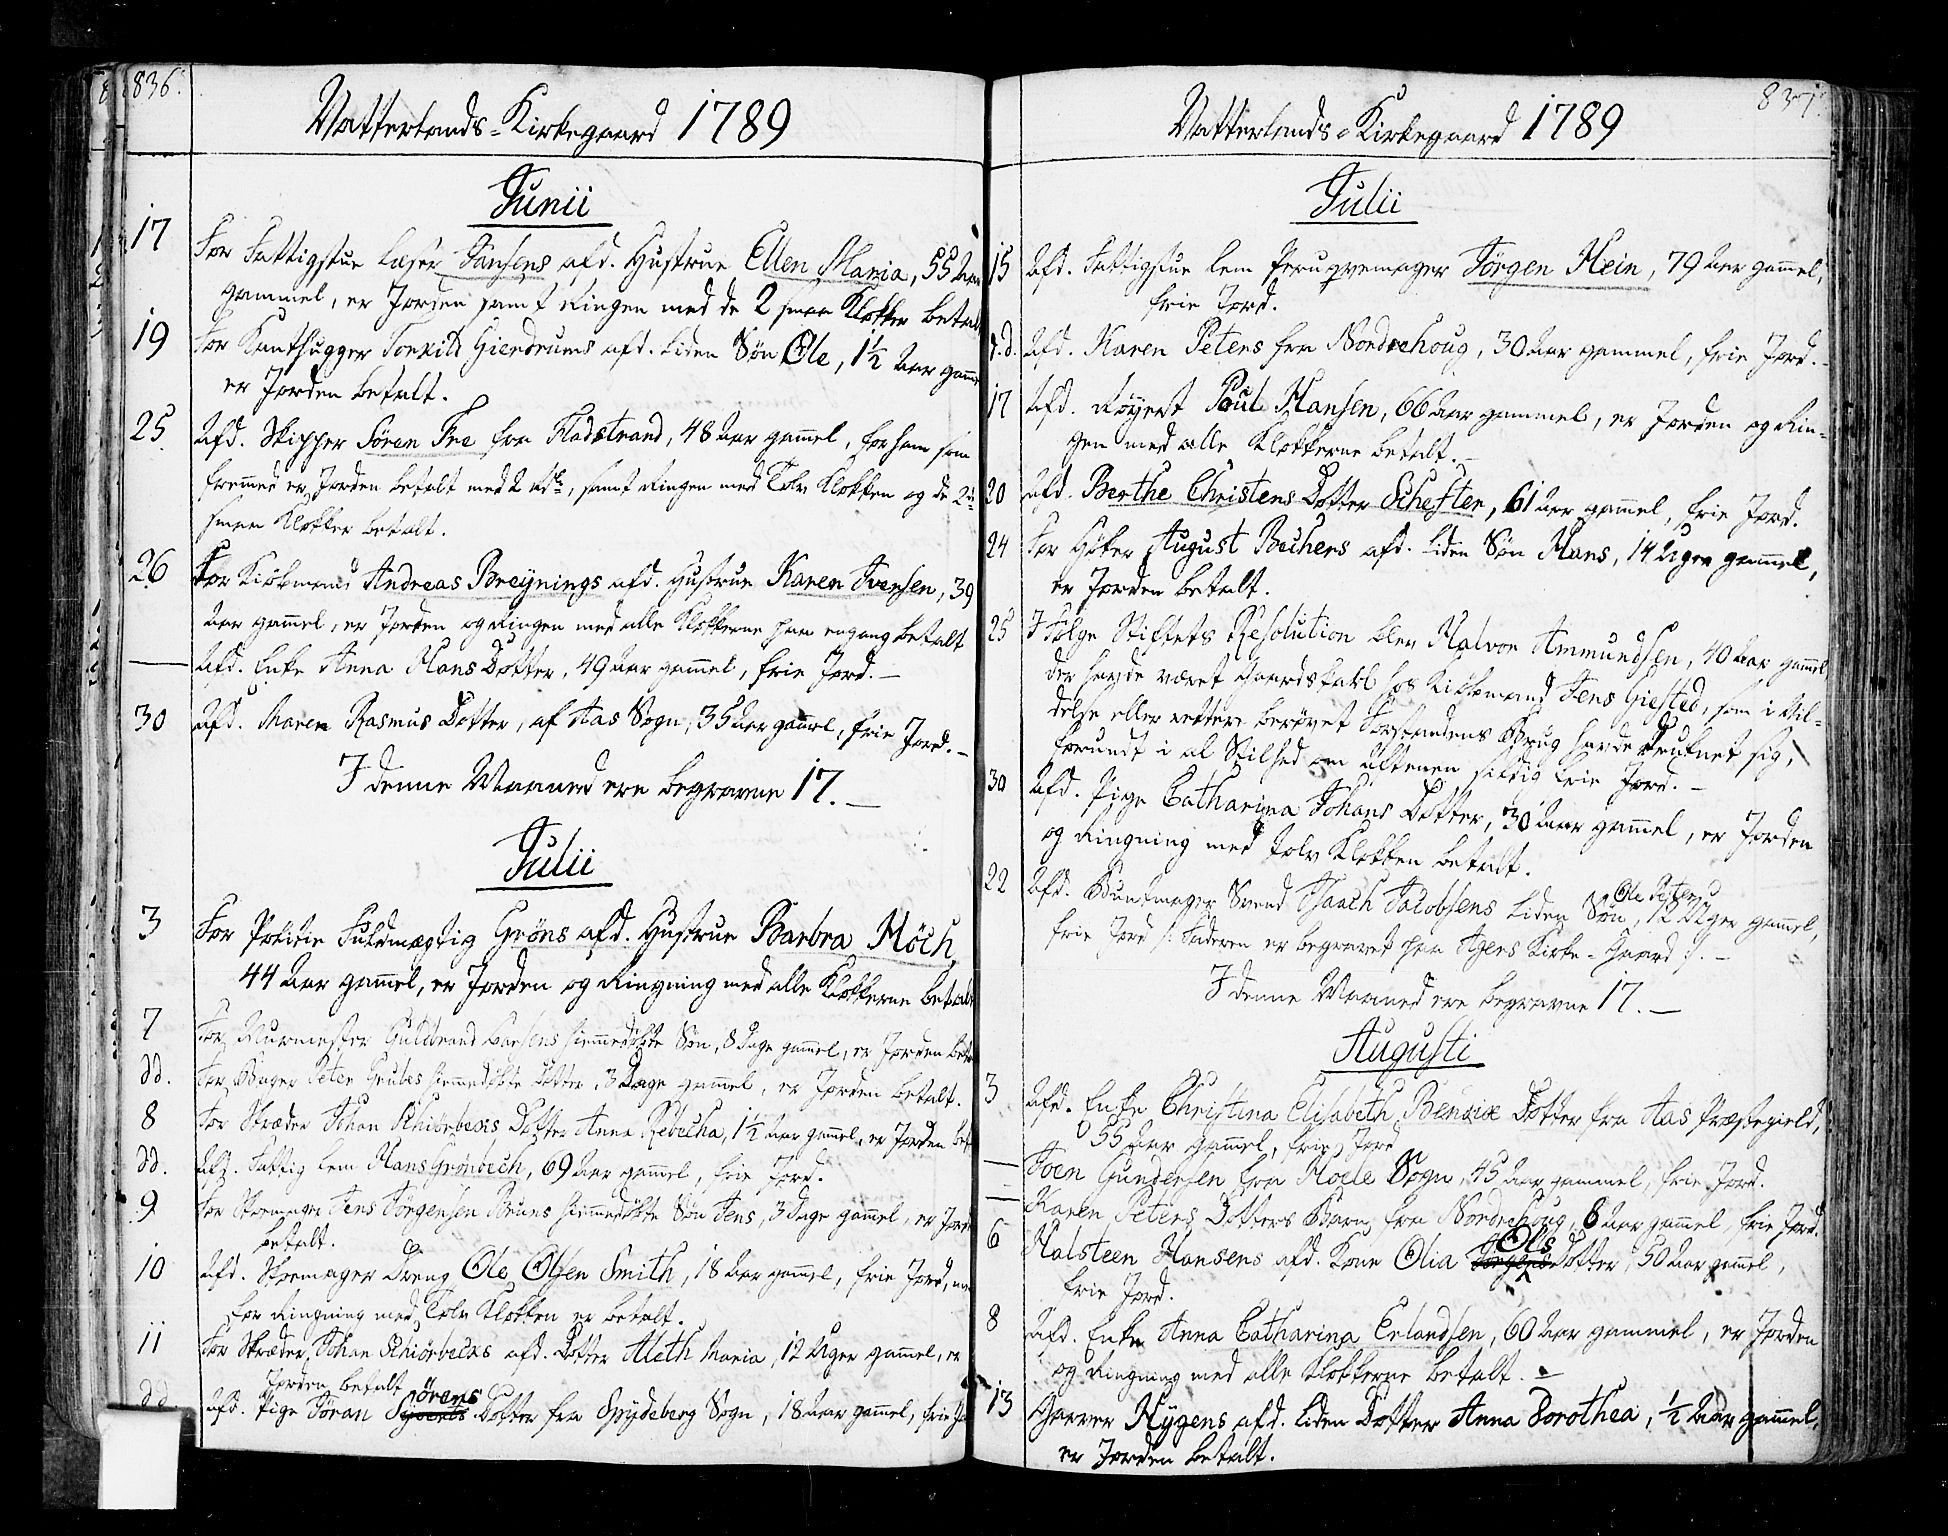 836.
Vatterlands-Kirkegaard 1789
Junii
17 For Fattigstue Læser Jansens afd. Hustrue Ellen Maria, 55 Aar
gammel, er Jorden samt Ringen med de 2 smaa Klokker betalt
19 For Kanthugger Torkild Giendrums afd. liden Søn Ole, 1½ Aar gammel
er Jorden betalt.
25 Afd. Skipper Sören Fre fra Fladstrand, 48 Aar gam̄el, for ham som
fremmed er Jorden betalt med 2 Rdlr, samt Ringen med Tolv Klokken og de 2de
smaa Klokker betalt.
26 For Kiøbmand Andreas Breÿnings afd. Hustrue Karen Iversen, 39
Aar gam̄el, er Jorden og Ringen med alle Klokkerne paa engang betalt
— Afd. Enke Anna Hans Dotter, 49 Aar gam̄el, frie Jord. —
30 Afd. Maren Rasmus Dotter, af Aas Sogn, 35 Aar gam̄el, frie Jord. —
I denne Maaned ere begravne 17. —
Julii
3 For Politie Fuldmægtig Gröns afd. Hustrue Barbra Höch,
44 Aar gam̄el, er Jorden og Ringning med alle Klokkerne betalt
7 For Murmester Guldbrand Larsens hiemmedøbte Søn, 8 Dage gam̄el, er Jorden betalt
dd. For Bager Peter Grubes hiemmedøbte Dotter, 3 Dage gam̄el, er Jorden betalt.
8 For Skræder Johan Schiörbecks Dotter Anna Rebecha, 1½ Aar gam̄el, er Jorden bet
dd. Afd. Fattig Lem Hans Grönbech, 69 Aar gam̄el, frie Jord.
9 For Skomager Jens Jörgensen Bruns hiemmedøbte Søn Jens, 3 Dage gam̄el, er Jorden
betalt.
10 Afd. Skomager Dreng Ole Olsen Smith, 18 Aar gam̄el, frie Jord, men
for Ringning med Tolv Klokken er betalt.
11 For Skræder Johan Schiörbecks afd. Dotter Aleth Maria, 12 Uger gam̄el, er
Jorden betalt
dd. Afd. Pige Jöran Sörens Dotter fra Spÿdeberg Sogn, 18 Aar gam̄el, frie Jo
837.
Vatterlands-Kirkegaard 1789
Julii
15 Afd. Fattigstue Lem Peruqvemager Jörgen Hein, 79 Aar gam̄el,
frie Jord.
d.d. Afd. Karen Peters fra Nordrehoug, 30 Aar gammel, frie Jord. —
17 Afd. Røyert Poul Hansen, 66 Aar gammel, er Jorden og Rin-
gen med alle Klokkerne betalt. —
20 Afd. Berthe Christens Dotter Schefter, 61 Aar gam̄el, frie Jord.
24 For Høker August Bechers afd. liden Søn Hans, 14 Uger gam̄el,
er Jorden betalt.
25 I Følge Stiftets Resolution blev Halvor Ammundsen, 40 Aar gam̄el
der havde været Gaardskarl hos Kiøbmand Jens Giested, som i Vil-
delse eller rettere berøvet Forstandens Brug havde druknet sig,
forundt i al Stilhed om Aftenen sildig frie Jord. —
30 Afd. Pige Catharina Johans Dotter, 30 Aar gam̄el, er Jorden
og Ringning med Tolv Klokken betalt.
22 Afd. Buntmager Svend Isaach Jacobsens liden Søn Ole Peter, 12 Uger gam̄el,
frie Jord /: Faderen er begravet paa Agers Kirke-Gaard :/. —
I denne Maaned ere begravne 17. —
Augusti
3 Afd. Enke Christina Elisabeth Bendix Dotter fra Aas Præstegield,
55 Aar gam̄el, frie Jord
— Joen Gundersen fra Hoele Sogn, 45 Aar gammel, frie Jord.
— Karen Peters Dotters Barn fra Nordrehoug, 6 Aar gam̄el, frie Jord.
6 Halsteen Hansens afd. Kone Olia Ols Dotter, 50 Aar gam̄el,
frie Jord.
8 Afd. Enke Anna Catharina Erlandsen, 60 Aar gammel, er Jorden
og Ringning med alle Klokkerne betalt. —
13 Garver Nÿgens afd. liden Dotter Anna Dorothea, ½ Aar gam̄el,
er Jorden betalt.